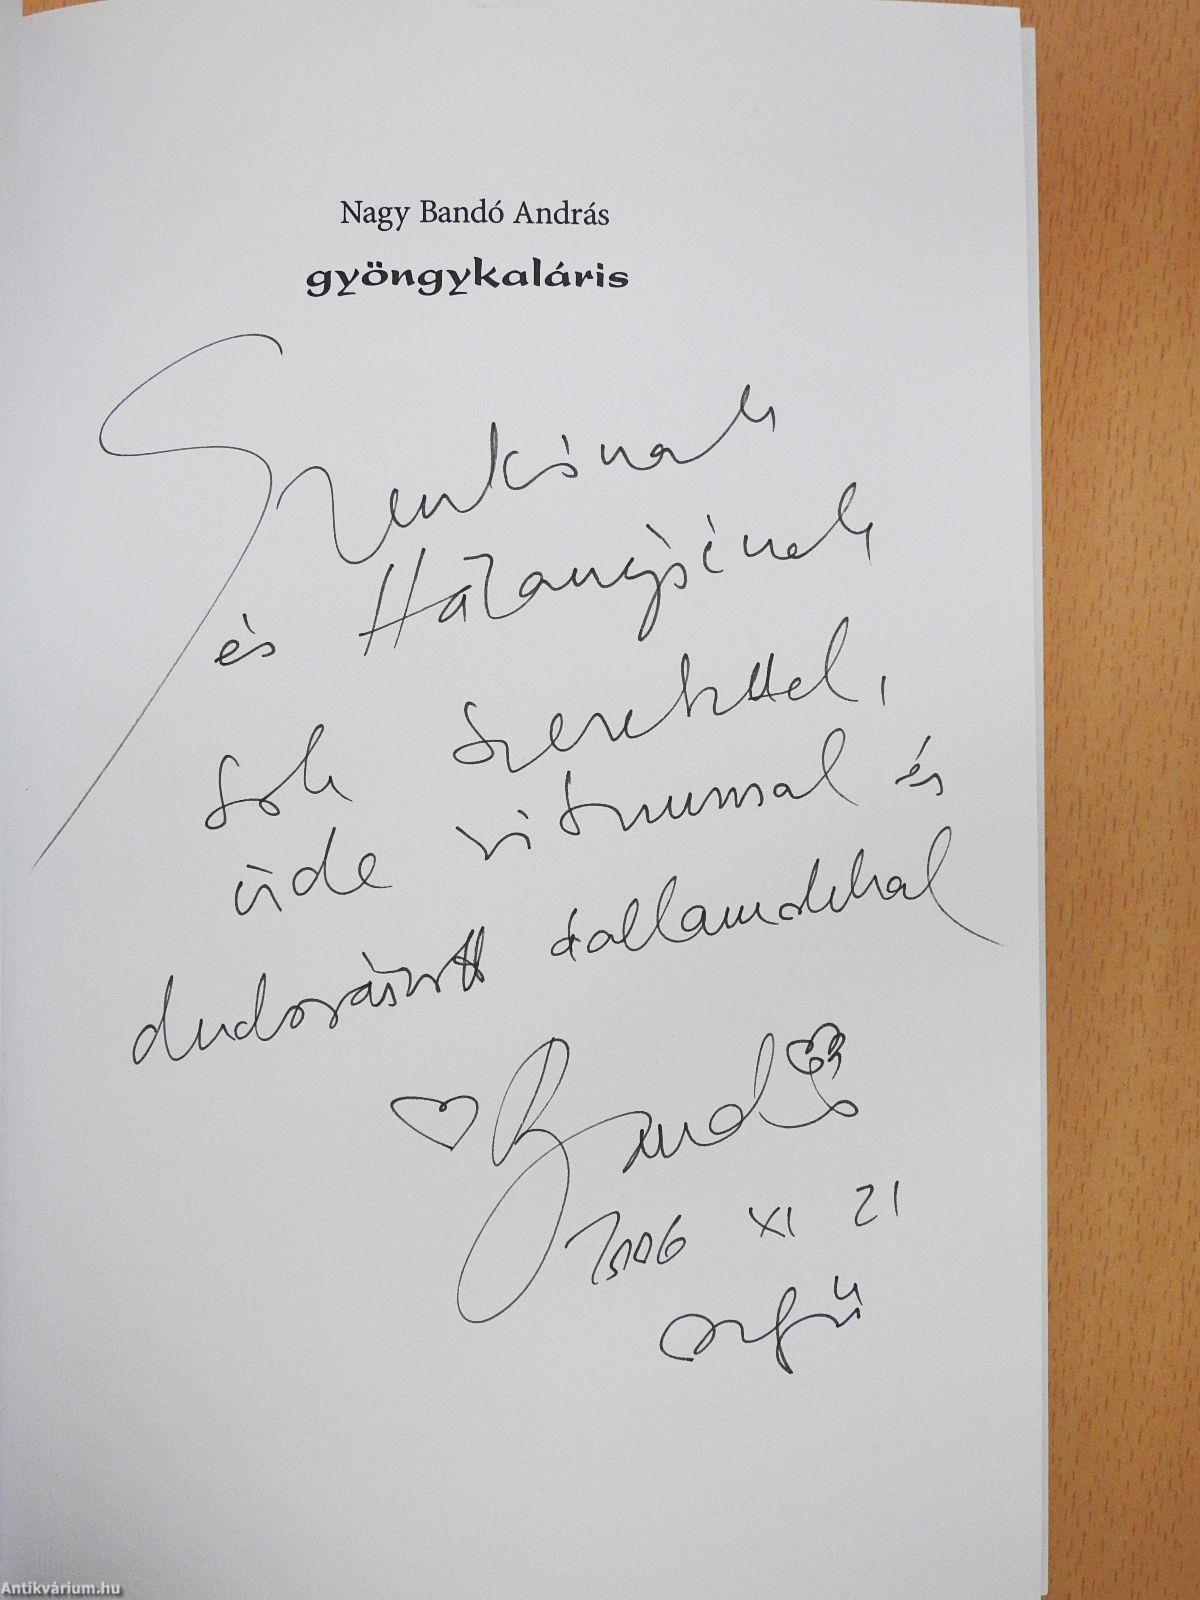 Nagy Bandó András
gyöngykaláris
Szenkónak
és
sok szeretettel,
üde ritmussal és
dudorászott dallamokkal
Bandó
2006 XI 21
Orfű
Antikvárium.hu